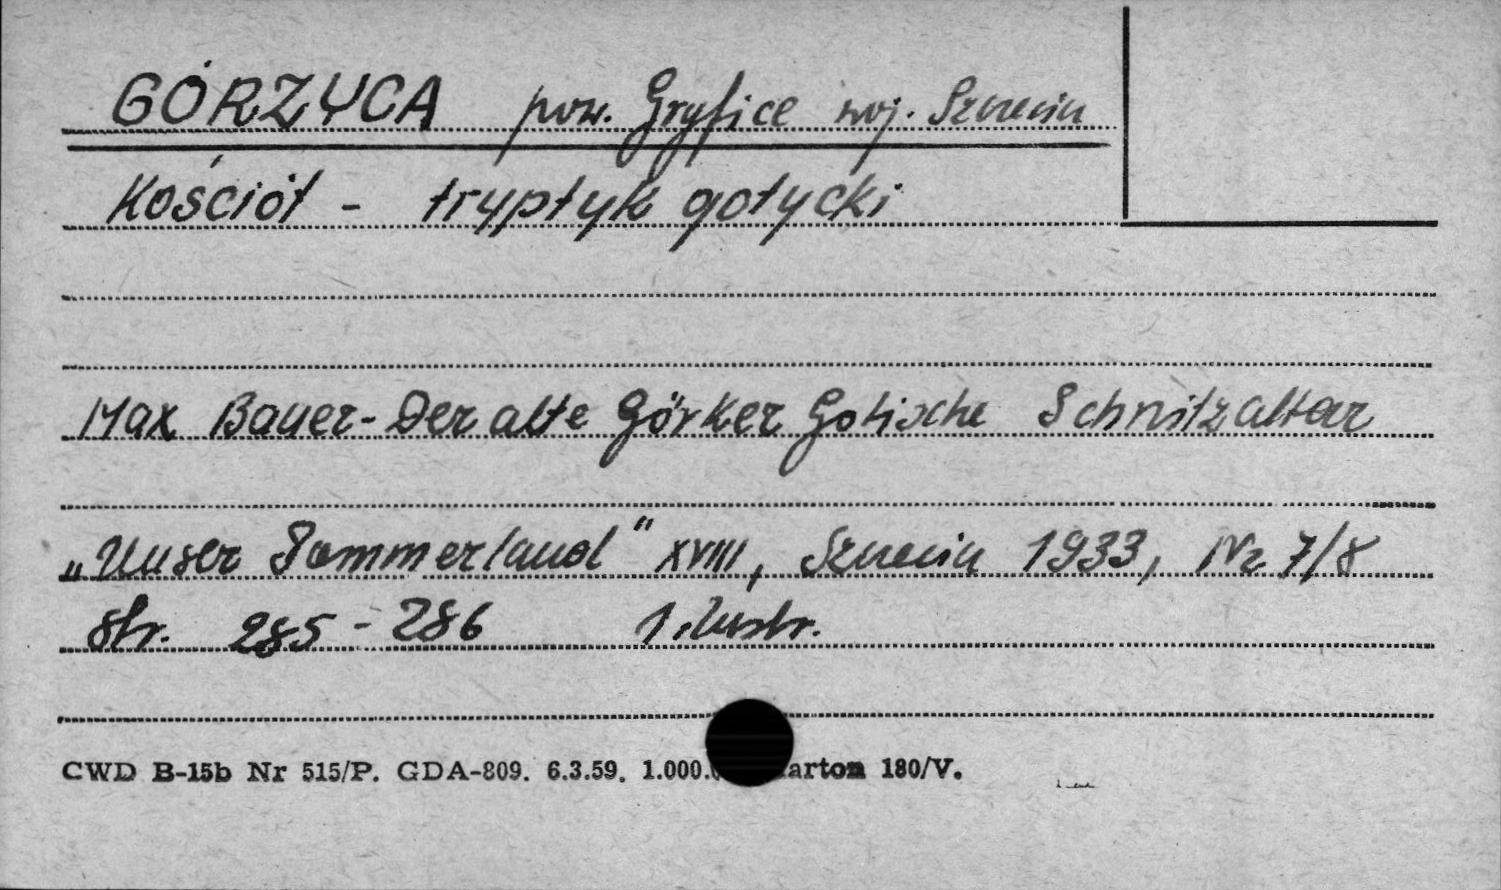 GÓRZYCA pow. Gryfice woj. Szczecin
Kościół - tryptyk gotycki
Max Bauer - Der alte Görker Gotische Schnitzaltar
„Unser Pommerland" XVIII, Szczecin 1933, Nr 7/8
str. 285 - 286 1 ilustr.
CWD B-15b Nr 515/P. GDA-809. 6.3.59. 1.000. 180/V.